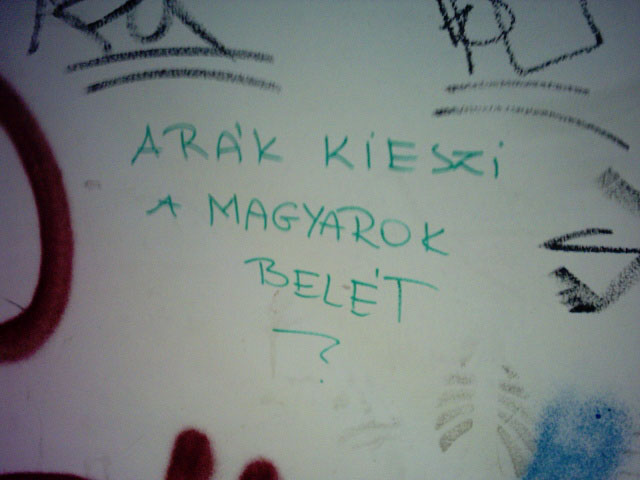 A RÁK KIESZI
A MAGYAROK
BELÉT
?